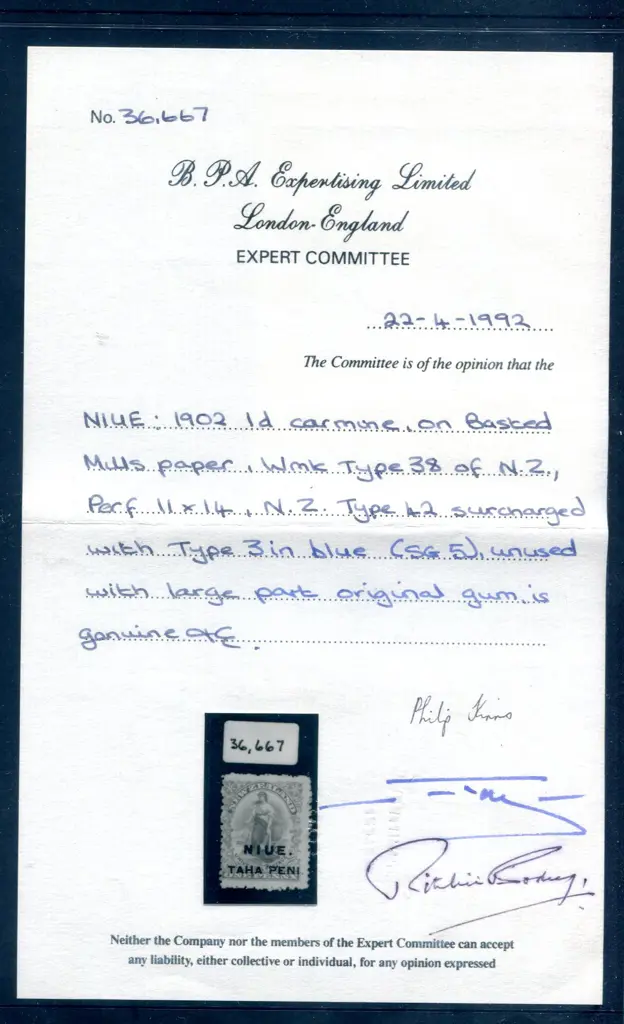 No. 36,667
B. P. A. Expertising Limited
London-England
EXPERT COMMITTEE
22-4-1992
The Committee is of the opinion that the
NIUE: 1902 1d carmine, on Basted
Mills paper, Wmk Type 38 of N.Z.,
Perf 11 x 14, N.Z. Type 42 surcharged
with Type 3 in blue (SG 5), unused
with large part original gum, is
genuine
Philip
36,667
NIUE.
TAHA PENI
Neither the Company nor the members of the Expert Committee can accept
any liability, either collective or individual, for any opinion expressed